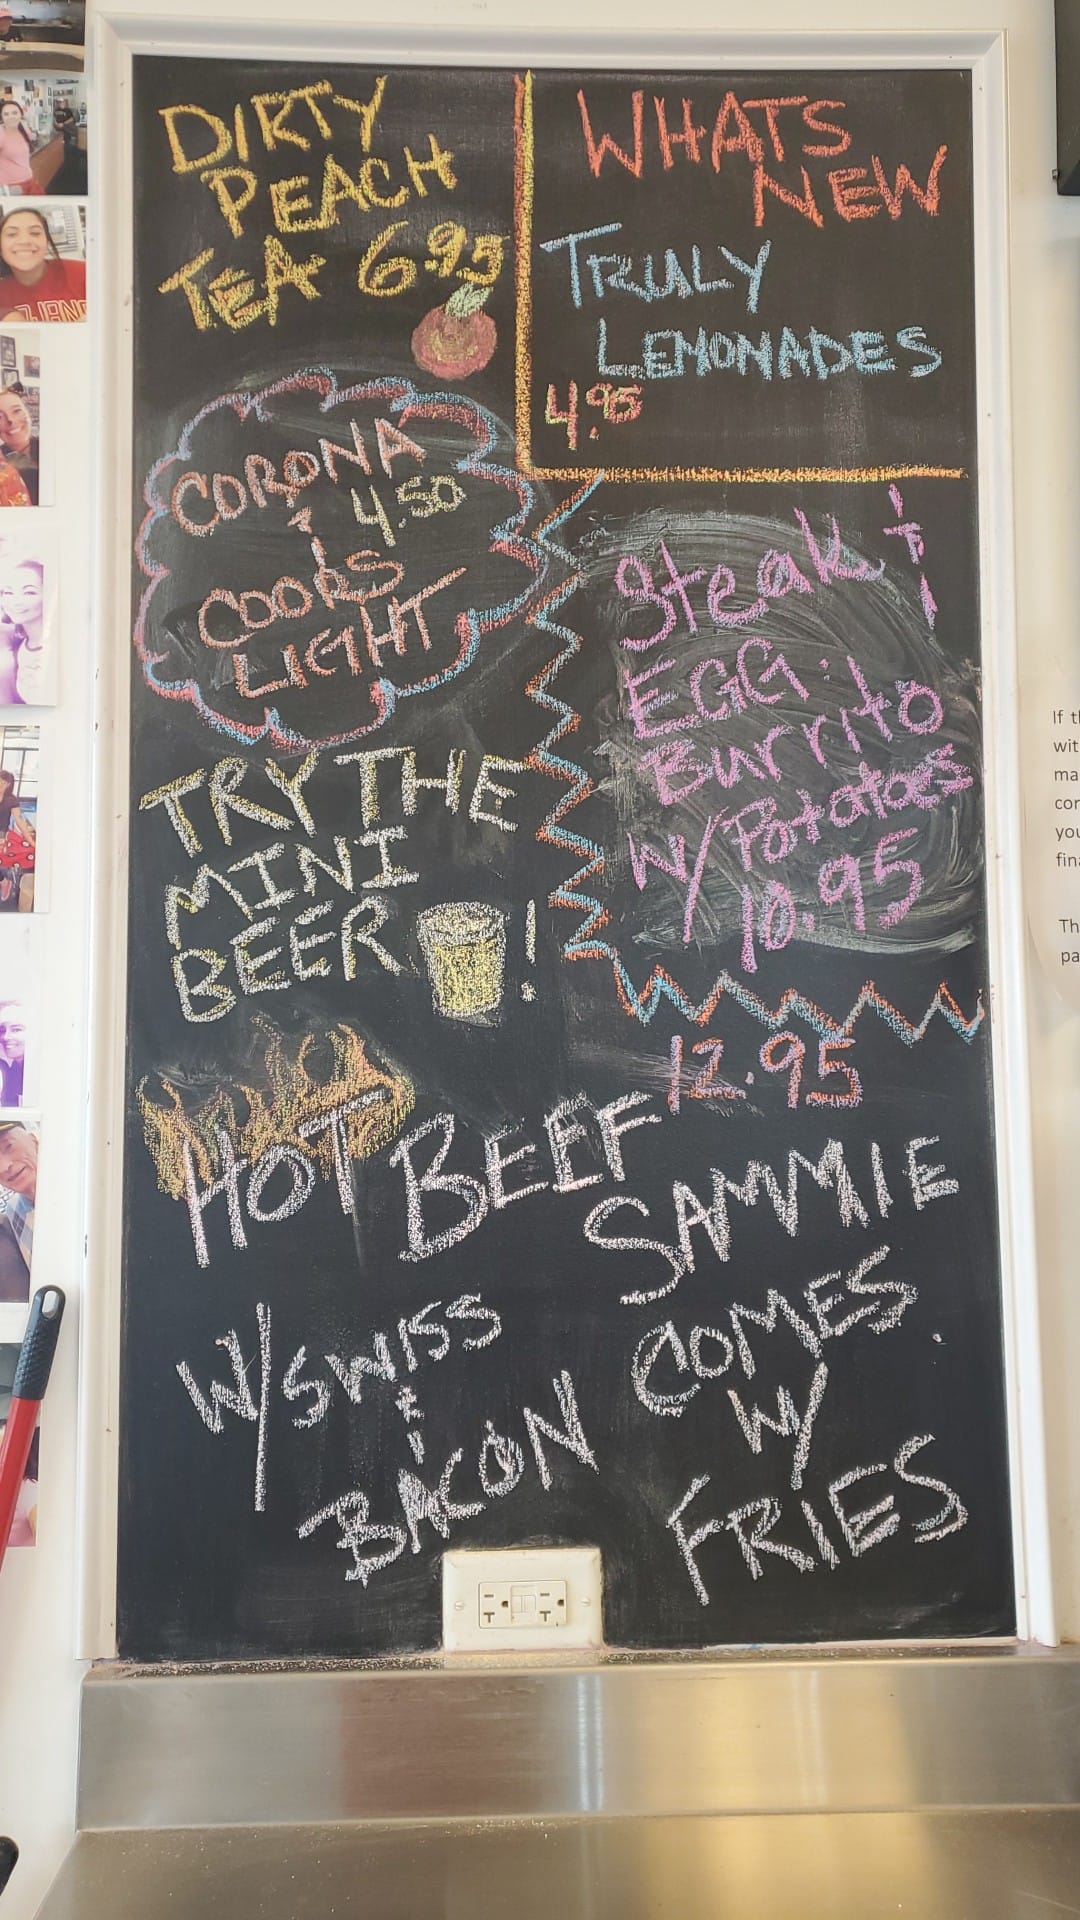 DIRTY
PEACH
TEA 6.95
WHATS
NEW
TRULY
LEMONADES
4.95
CORONA
&
4.50
COORS
LIGHT
Steak &
EGG
Burrito
W/ Potatoes
10.95
TRY THE
MINI
BEER !
12.95
HOT BEEF
SAMMIE
W/ SWISS
&
BACON
COMES
W/
FRIES
If